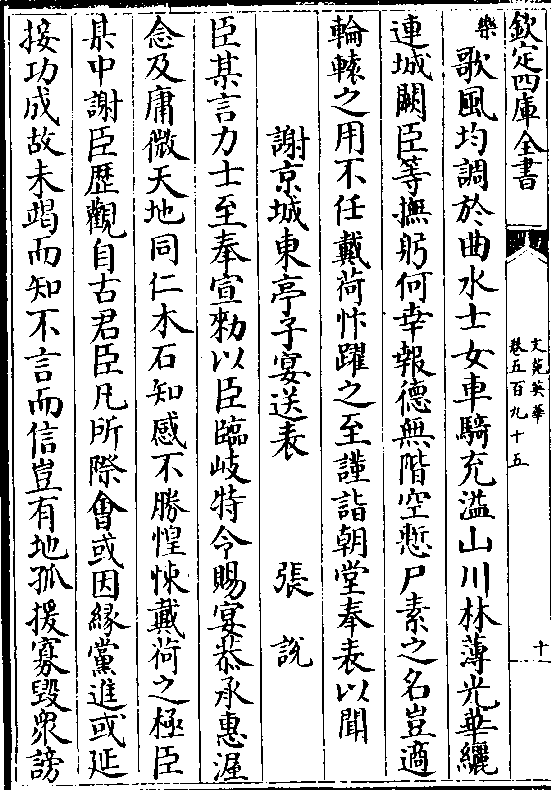 欽定四庫全書
文苑英華
卷五百九十五
十
樂歌風均調於曲水士女車騎充溢山川林薄光華纚
連城闕臣等撫躬何幸報德無階空慙尸素之名豈適
輪轅之用不任戴荷忭躍之至謹詣朝堂奉表以聞
謝京城東亭子宴送表 張說
臣某言力士至奉宣勑以臣臨岐特令賜宴恭承惠渥
念及庸微天地同仁木石知感不勝惶悚戴荷之極臣
某中謝臣歷觀自古君臣凡所際會或因緣黨進或延
接功成故未竭而知不言而信豈有地孤援寡毀衆謗